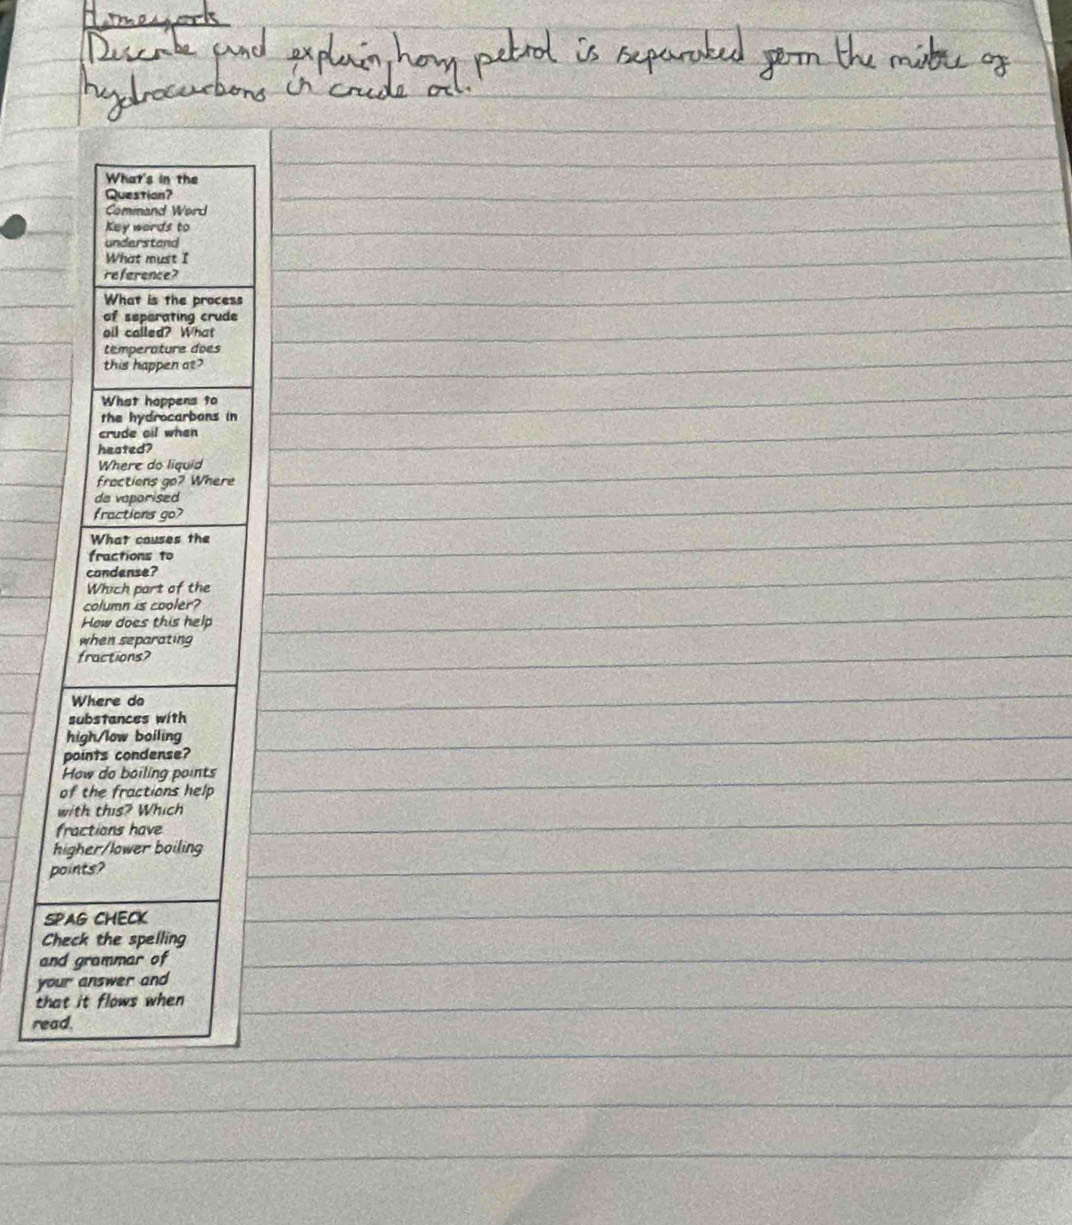 Homework
Describe and explain, how petrol is separated from the mixture of
hydrocarbons in crude oil.
What's in the
Question?
Command Word
Key words to
understand
What must I
reference?
What is the process
of separating crude
oil called? What
temperature does
this happen at?
What happens to
the hydrocarbons in
crude oil when
heated?
Where do liquid
fractions go? Where
do vaporised
fractions go?
What causes the
fractions to
condense?
Which part of the
column is cooler?
How does this help
when separating
fractions?
Where do
substances with
high/low boiling
points condense?
How do boiling points
of the fractions help
with this? Which
fractions have
higher/lower boiling
points?
SPAG CHECK
Check the spelling
and grammar of
your answer and
that it flows when
read.